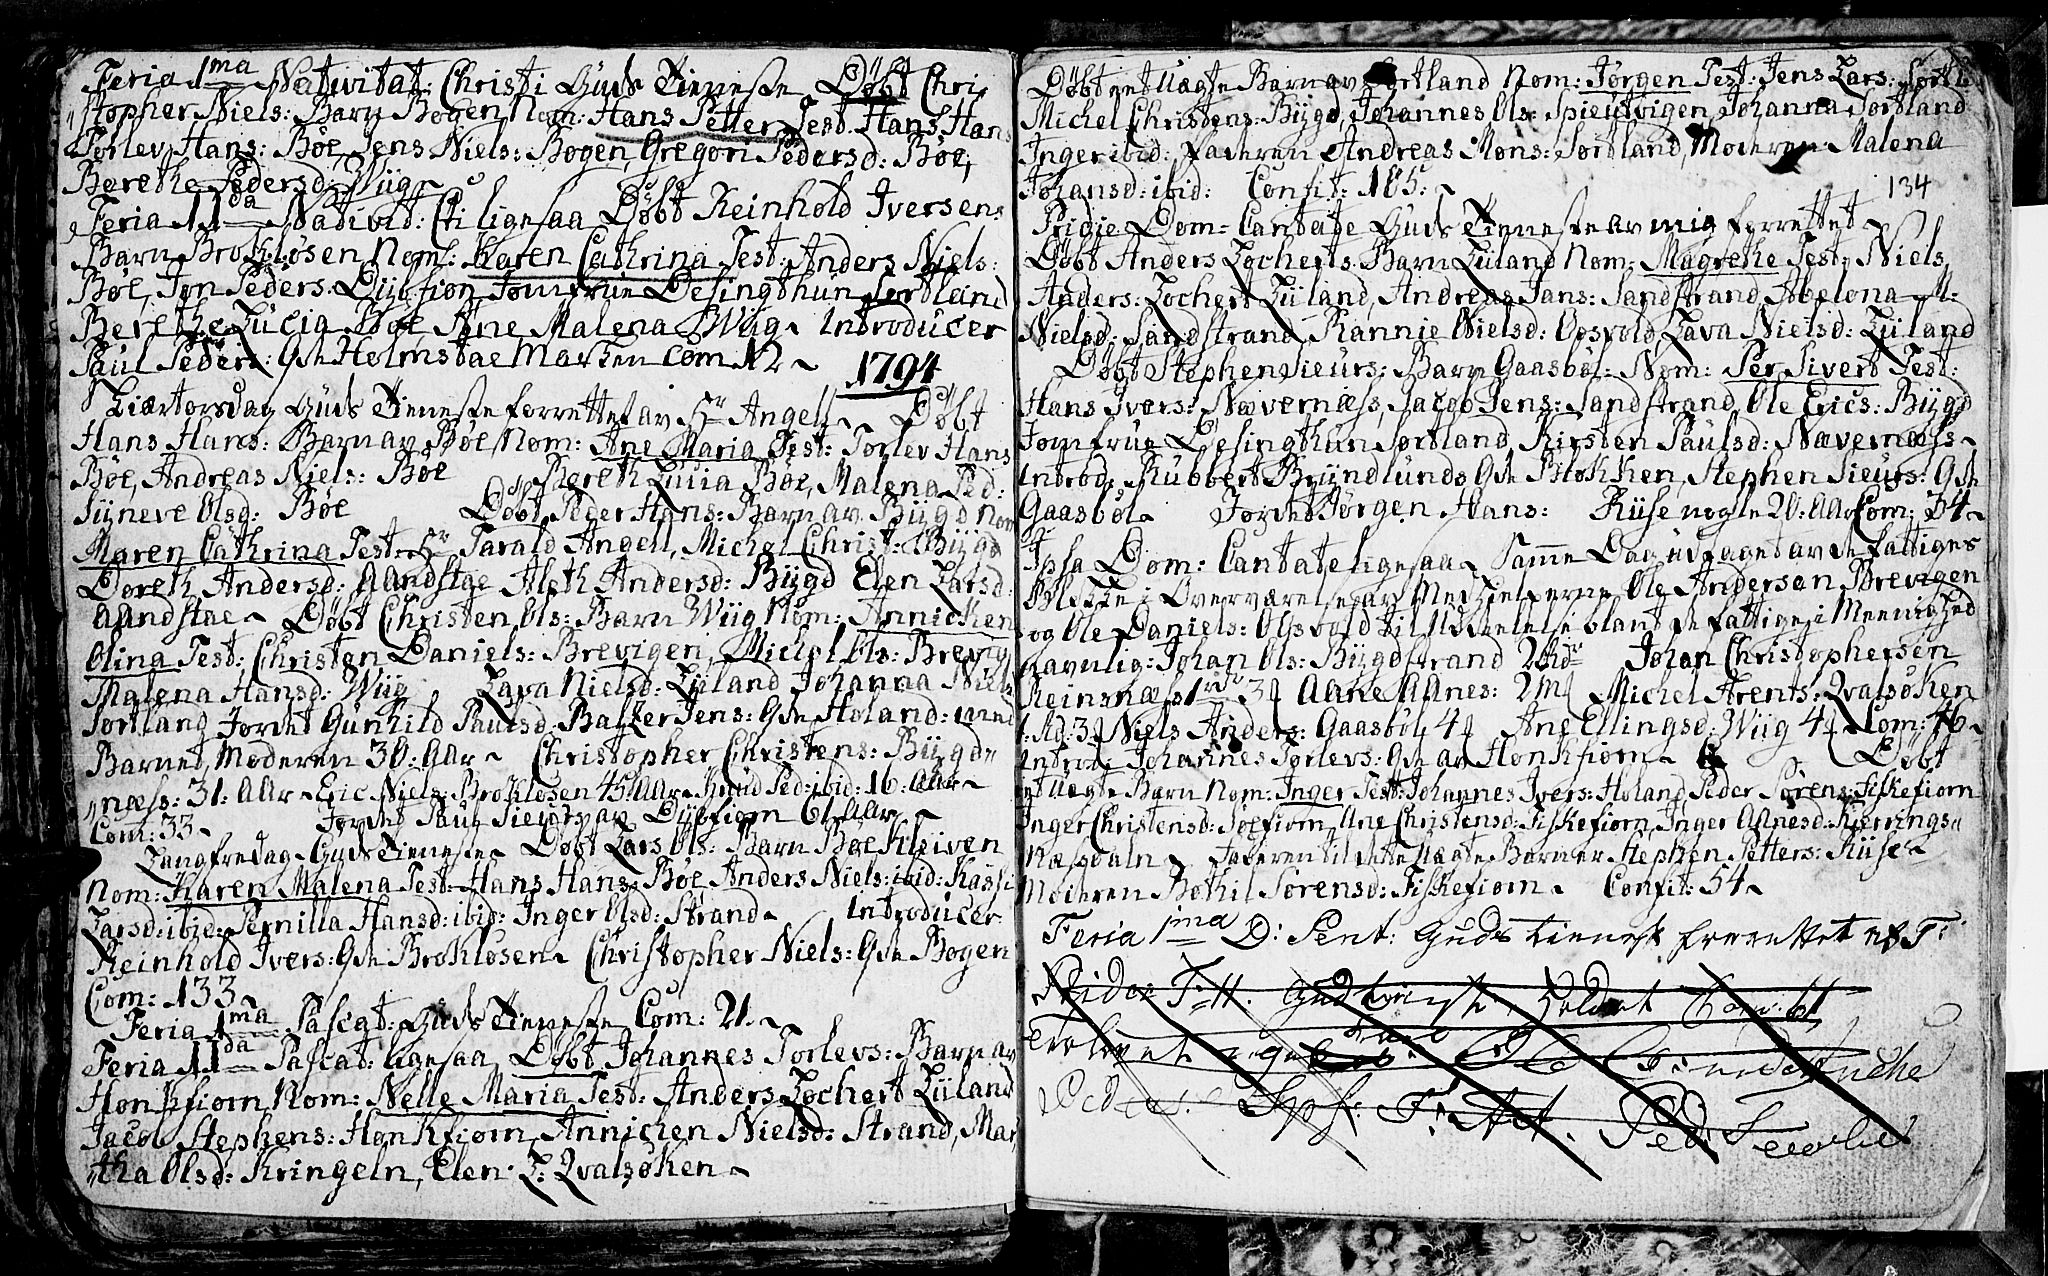 Feria 1ma Nativitat: Christi Guds Tieneste Døbt Chri,
stopher Niels: Barn Bogen Nom: Hans Petter Test: Hans Hans
Torlev Hans: Bøe, Jens Niels: Bogen, Gregori Pedersd: Bøe,
Berethe Pedersd: Wiig
Feria 11da Nativit: Cti ligesaa Døbt Reinhold Iversens
Barn Brokløsen Nom: Karen Cathrina Test: Anders Niels:
Bøe, Jon Peders: Dybfion Jomfrue Desingthun Sortland
Berethe Lucia Bøe Ane Malena Wiig Introducer
Paul Peders: Qde Holmstae Marken Com: 12
1794
Skiærtorsdag Guds Tieneste forrettet av Hr Angell Døbt
Hans Hans: Barn av Bøe, Nom: Ane Maria Test: Torlev Hans
Bøe, Andreas Niels: Bøe Bereth Lucia Bøe, Malena Ped:
Synneve Olsd: Bøe Døbt Peder Hans: Barn av Bÿgd Nom
Maren Cathrina Test: Hr Tarald Angell, Michel Christ: Bÿgd
Doreth Andersd: Aandstae Aleth Andersd: Bÿgd Elen Larsd:
Aandstae Døbt Christen Ols: Barn Wiig Nom: Annichen
Olina Test: Christen Daniels: Brevigen, Michel Ols: Brevig
Malena Hansd: Wiig Lava Nielsd: Lüland Johanna Niels
Sortland Jordet Gunhild Paulsd Baltzer Jens: Qde Holand: med
Barnet, Moderen 30: Aar Christopher Christens: Bÿgd„
„næss: 31: Aar Eric Niels: Brokløsen 45: Aar Knud Ped: ibid: 16: Aar
Com: 33 Jordet Paul Sieurs av Dybfiorn 61 Aar
Langfredag Guds Tieneste Døbt Lars Ols: Barn Bøe Kleiven
Nom: Karen Malena Test: Hans Hans: Bøe Anders Niels: ibid: Kassi
Larsd: ibid: Pernilla Hansd: ibid: Inger Olsd: Strand Introducer
Reinhold Ivers: Qde Brokløsen Christopher Niels: Qde Bogen
Com: 133
Feria 1ma Pascat: Guds Tieneste Com: 21.
Feria 11da Pascat: ligesaa Døbt Johannes Torlevs: Barn av
Honkfiorn Nom: Nelle Maria Test: Anders Lochert Lüland
Jacob Stephens: Honkfiorn, Annichen Nielsd: Strand, Mar
„tha Olsd: Kringeln, Elen: L: Qvalsøken
Døbt et Uægte Barn av Sortland Nom: Jørgen Test: Jens Lars: Sortl
Michel Christens: Bÿgd, Johannes Ols: Spieutvigen, Johanna Sortland
Inger ibid: Faderen Andreas Mons: Sortland, Moderen Malena
Johansd: ibid: Confit: 185:
134
Pridie Dom: Cantate Guds Tieneste av mig forrettet
Døbt Anders Locherts Barn Lüland Nom: Magrethe Test: Niels
Anders: Lochert Lüland, Andreas Jans: Sandstrand Abelona M:
Nielsd: Sandstrand Rannie Nielsd: Oesvold Lava Nielsd: Lüland
Døbt Stephen Sieurs: Barn Gaasbøl: Nom: Per Sivert Test:
Hans Ivers: Nævernæss, Jacob Jens: Sandstrand, Ole Erics: Bÿgd
Jomfrue Desingthun Sortland, Kirsten Paulsd: Nævernæss
Introd: Rubbert Bryndlunds Qde Blokken, Stephen Sieurs: Qde
Gaasbøl Jordet Jørgen Hans: Rüse nogle 20: Aar Com: 34
Ipsa Dom: Cantate ligesaa Samme Dag udtaget av de fattiges
Blokke i Overværelse av Medhielperne Ole Andersen Brevigen
og Ole Daniels: Olsvold til Uddeelelse blant de fattige i Meenighed
navnlig: Johan Ols: Bÿgdstrand 2 Rdr Johan Christophersen
Reinsnæs 1 rd 3 Aane Aanes: 2 Michel Arents: Qvalsøken
1: Rd: 3 Niels Anders: Gaasbøl 4 Ane Ellingsd: Wiig 4 Com: 46
Introd: Johannes Torlevs: Qde av Honkfiorn Døbt
et Uægte Barn Nom: Inger Test: Johannes Ivers: Holand, Peder Sørens: Fiskefiorn
Inger Christensd: Soefiorn, Ane Christensd: Fiskefiorn, Inger Aanesd: Kierrings„
Næsdaln Faderen til dette Uægte Barn er Stephen Petters: Rüse
Moderen Bothil Sørensd: Fiskefiorn Confit: 54
Feria 1ma D: Pent: Guds tieneste forrettet af T:
Guds tieneste holdet Com: 61
Ped: